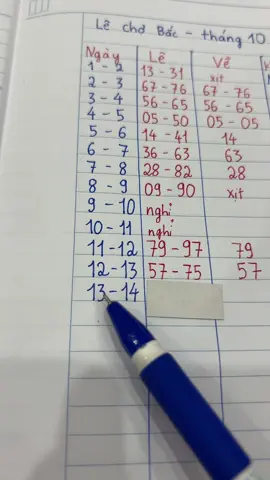 Lê chợ Bấc - tháng 10
Ngày Lê Về
1 - 2 13 - 31 xịt
2 - 3 67 - 76 67 - 76
3 - 4 56 - 65 56 - 65
4 - 5 05 - 50 05 - 05
5 - 6 14 - 41 14
6 - 7 36 - 63 63
7 - 8 28 - 82 28
8 - 9 09 - 90 xịt
9 - 10 nghỉ
10 - 11 nghỉ
11 - 12 79 - 97 79
12 - 13 57 - 75 57
13 - 14